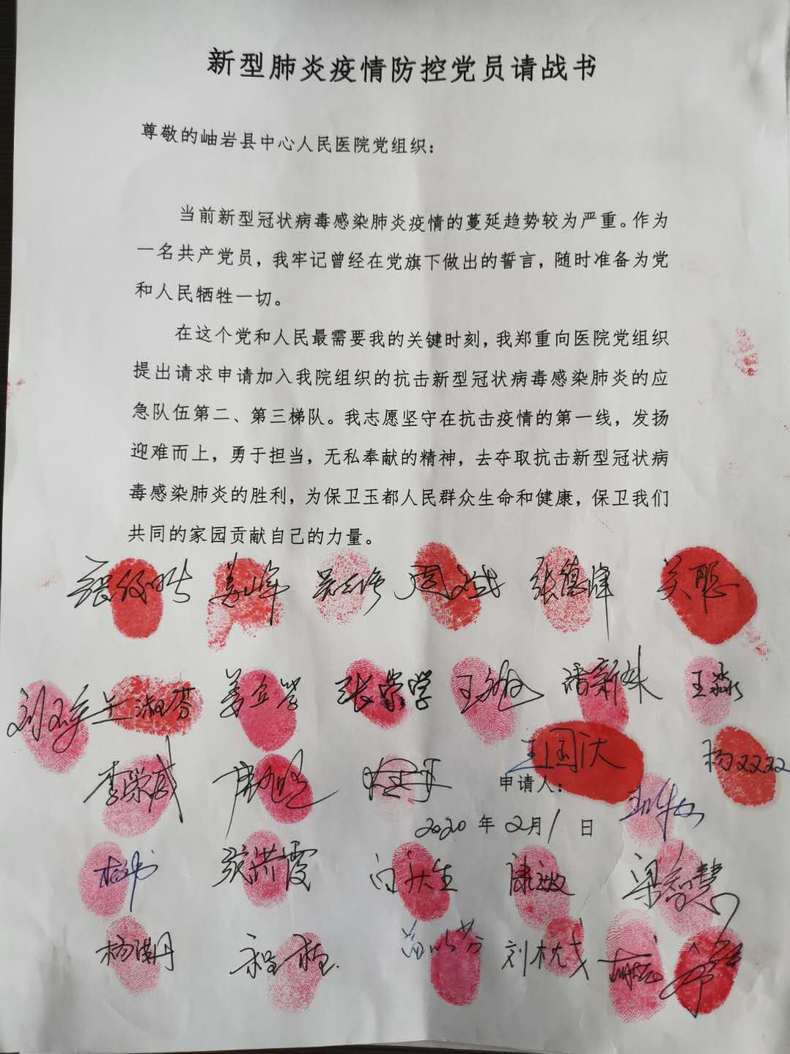 新型肺炎疫情防控党员请战书
尊敬的岫岩县中心人民医院党组织：
当前新型冠状病毒感染肺炎疫情的蔓延趋势较为严重。作为
一名共产党员，我牢记曾经在党旗下做出的誓言，随时准备为党
和人民牺牲一切。
在这个党和人民最需要我的关键时刻，我郑重向医院党组织
提出请求申请加入我院组织的抗击新型冠状病毒感染肺炎的应
急队伍第二、第三梯队。我志愿坚守在抗击疫情的第一线，发扬
迎难而上，勇于担当，无私奉献的精神，去夺取抗击新型冠状病
毒感染肺炎的胜利，为保卫玉都人民群众生命和健康，保卫我们
共同的家园贡献自己的力量。
姜峰 张德峰 关聪
兰淑芬 张崇学 潘新姝 王淼
王国汏 杨双双
李荣威 申请人：
2020 年 2月1 日
张洪霞 梁智慧
刘枕戈